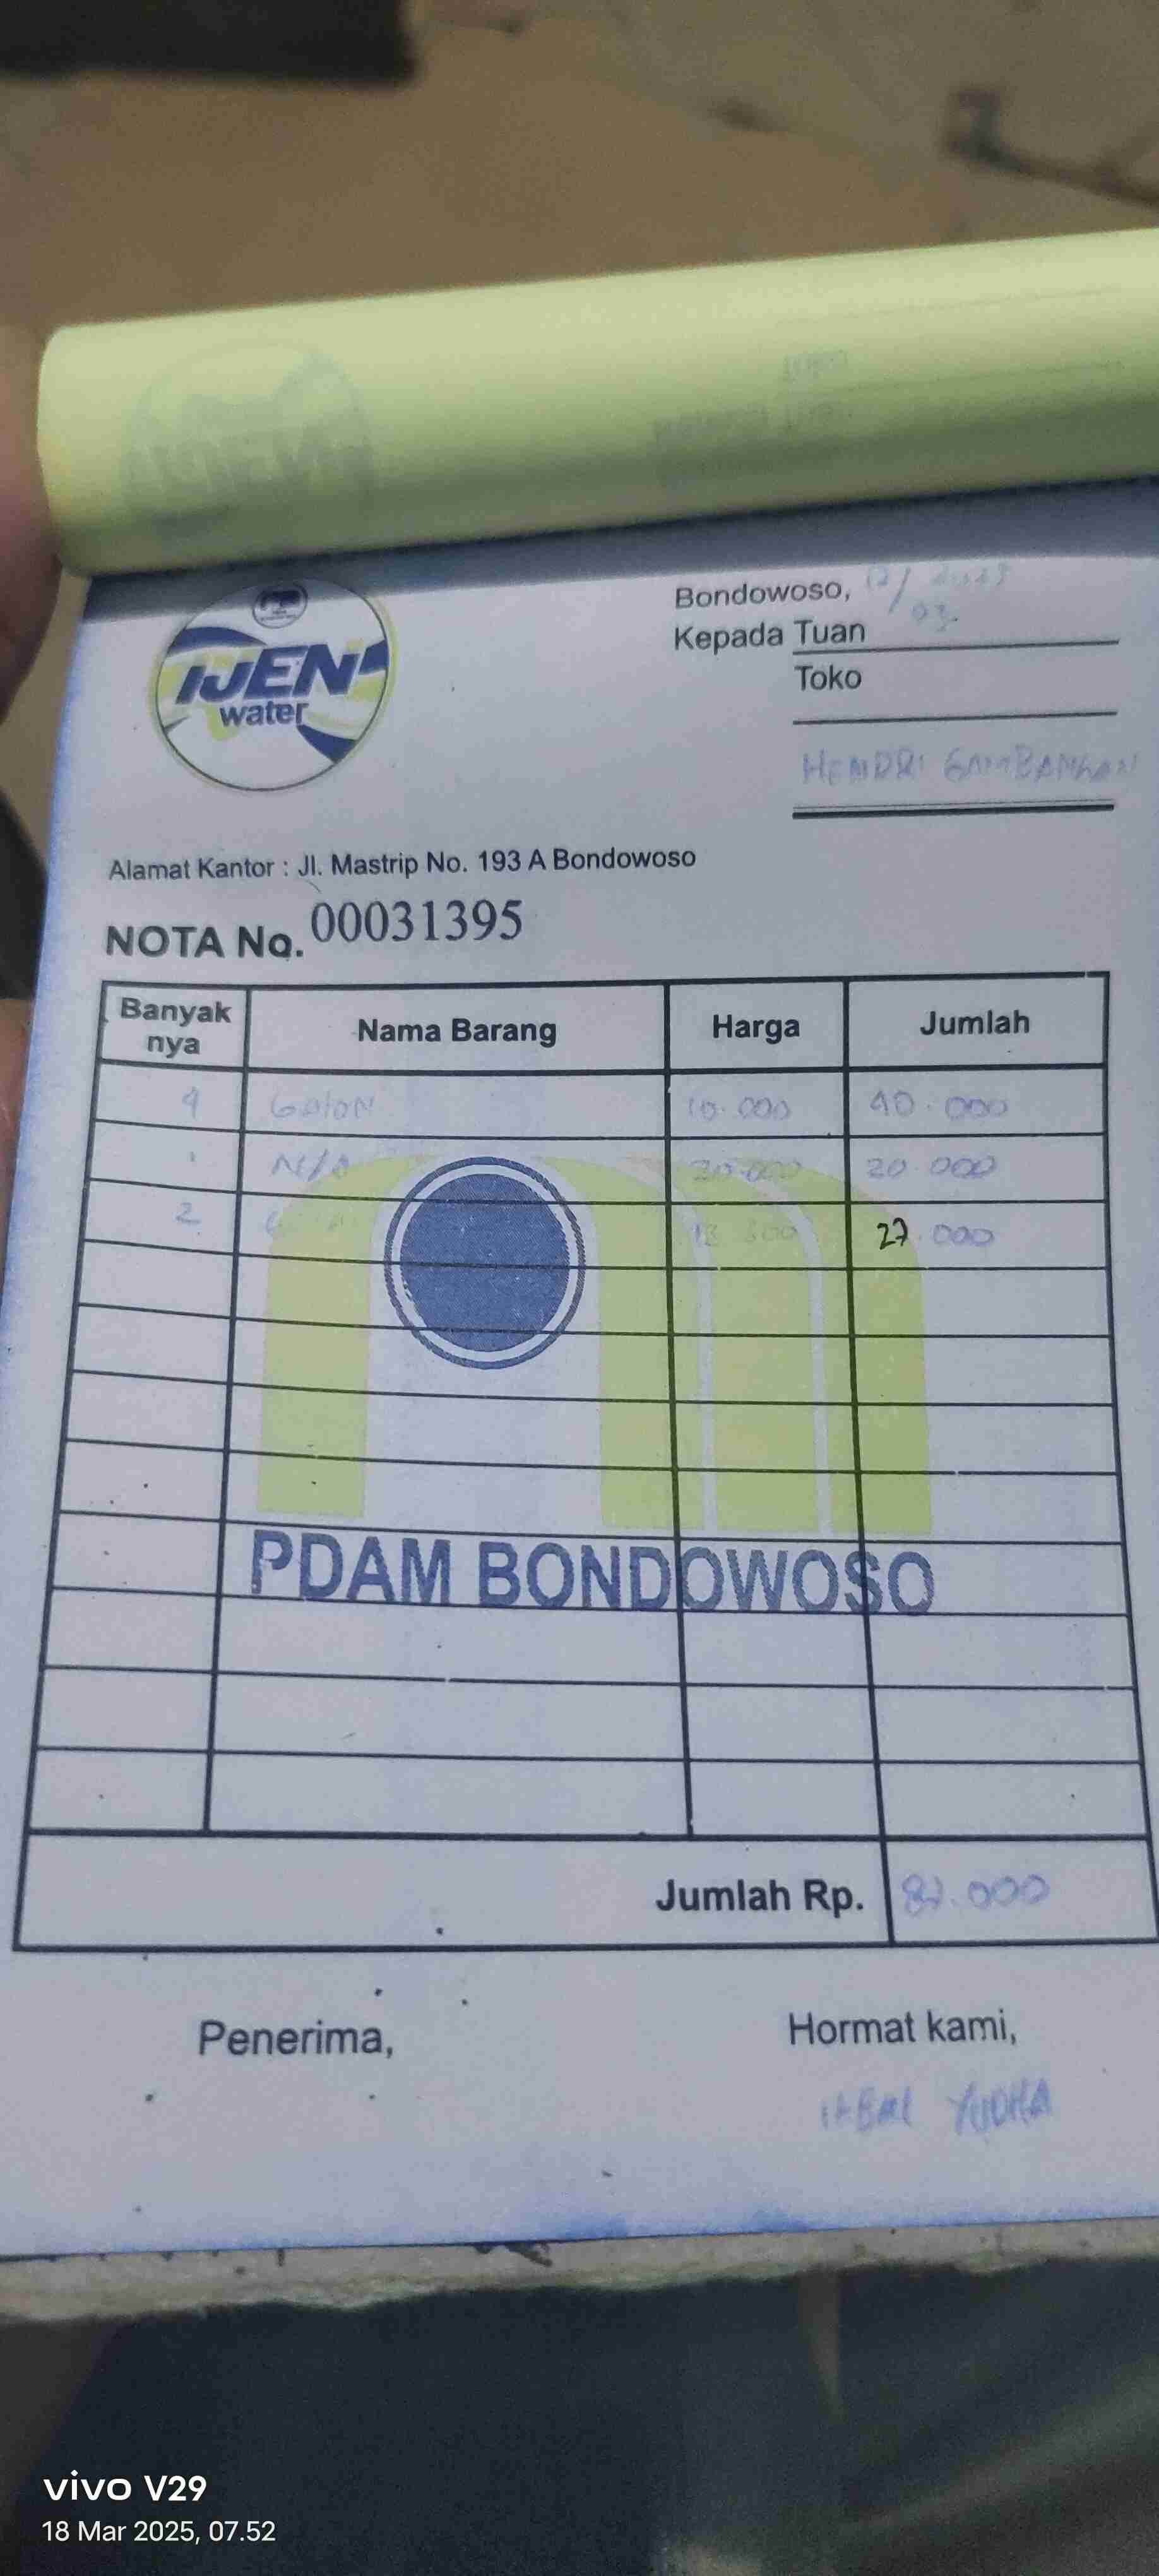 IJEN
water
Bondowoso, 17/03
Kepada Tuan
Toko
HENDRI
Alamat Kantor : Jl. Mastrip No. 193 A Bondowoso
NOTA No. 00031395
Banyak nya Nama Barang Harga Jumlah
4 Galon 10.000 40.000
N/A 20.000 20.000
2 13 500 27.000
PDAM BONDOWOSO
Jumlah Rp. 87.000
Penerima, Hormat kami,
YUDHA
vivo V29
18 Mar 2025, 07.52